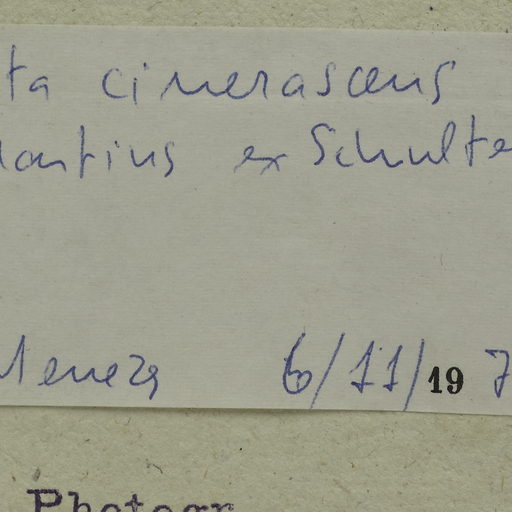 ta cinerascens
artius ex Schulte
Menezes 6/11/19 7
Photogr